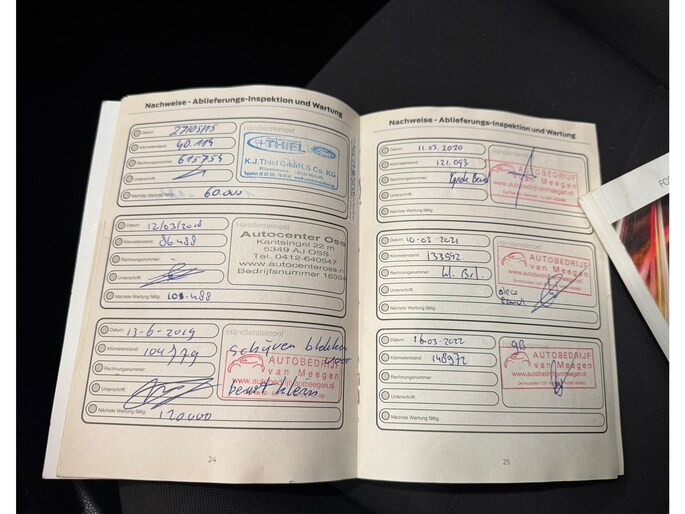 Nachweise - Ablieferungs-Inspektion und Wartung
Datum: 27/05/15
Händlerstempel
Kilometerstand: 40.119
THIEL
Rechnungsnummer: 615754
K.J.Thiel GmbH & Co. KG
Unterschrift:
Nächste Wartung fällig: 60.000
Datum: 12/03/2018
Händlerstempel
Kilometerstand: 86488
Autocenter Oss
Kantsingel 22 m
Rechnungsnummer: -
5349 AJ OSS
Tel. 0412-640547
Unterschrift:
www.autocenteross.n
Bedrijfsnummer 16354
Nächste Wartung fällig: 101.488
Datum: 13-6-2019
Händlerstempel
Kilometerstand: 104179
schijven blokken
voor
AUTOBEDRIJF
van Meegen
Rechnungsnummer:
www.autobedrijfvanmeegen.nl
Unterschrift:
beurt klein
Nächste Wartung fällig:
120000
24
Nachweise - Ablieferungs-Inspektion und Wartung
Datum: 11.03.2020
Händlerstempel
Kilometerstand: 121.093
AUTOBEDRIJF
van Meegen
Rechnungsnummer: Grote Beurt
www.autobedrijfvanmeegen.nl
Unterschrift:
Nächste Wartung fällig:
Datum: 10-03-2021
Händlerstempel
Kilometerstand: 133592
AUTOBEDRIJF
van Meegen
Rechnungsnummer: kl. Brt.
www.autobedrijfvanmeegen.nl
Unterschrift:
Nächste Wartung fällig:
Datum: 16-03-2022
GB
Kilometerstand: 148972
AUTOBEDRIJF
van Meegen
Rechnungsnummer:
www.autobedrijfvanmeegen.nl
Unterschrift:
Nächste Wartung fällig:
25
FO